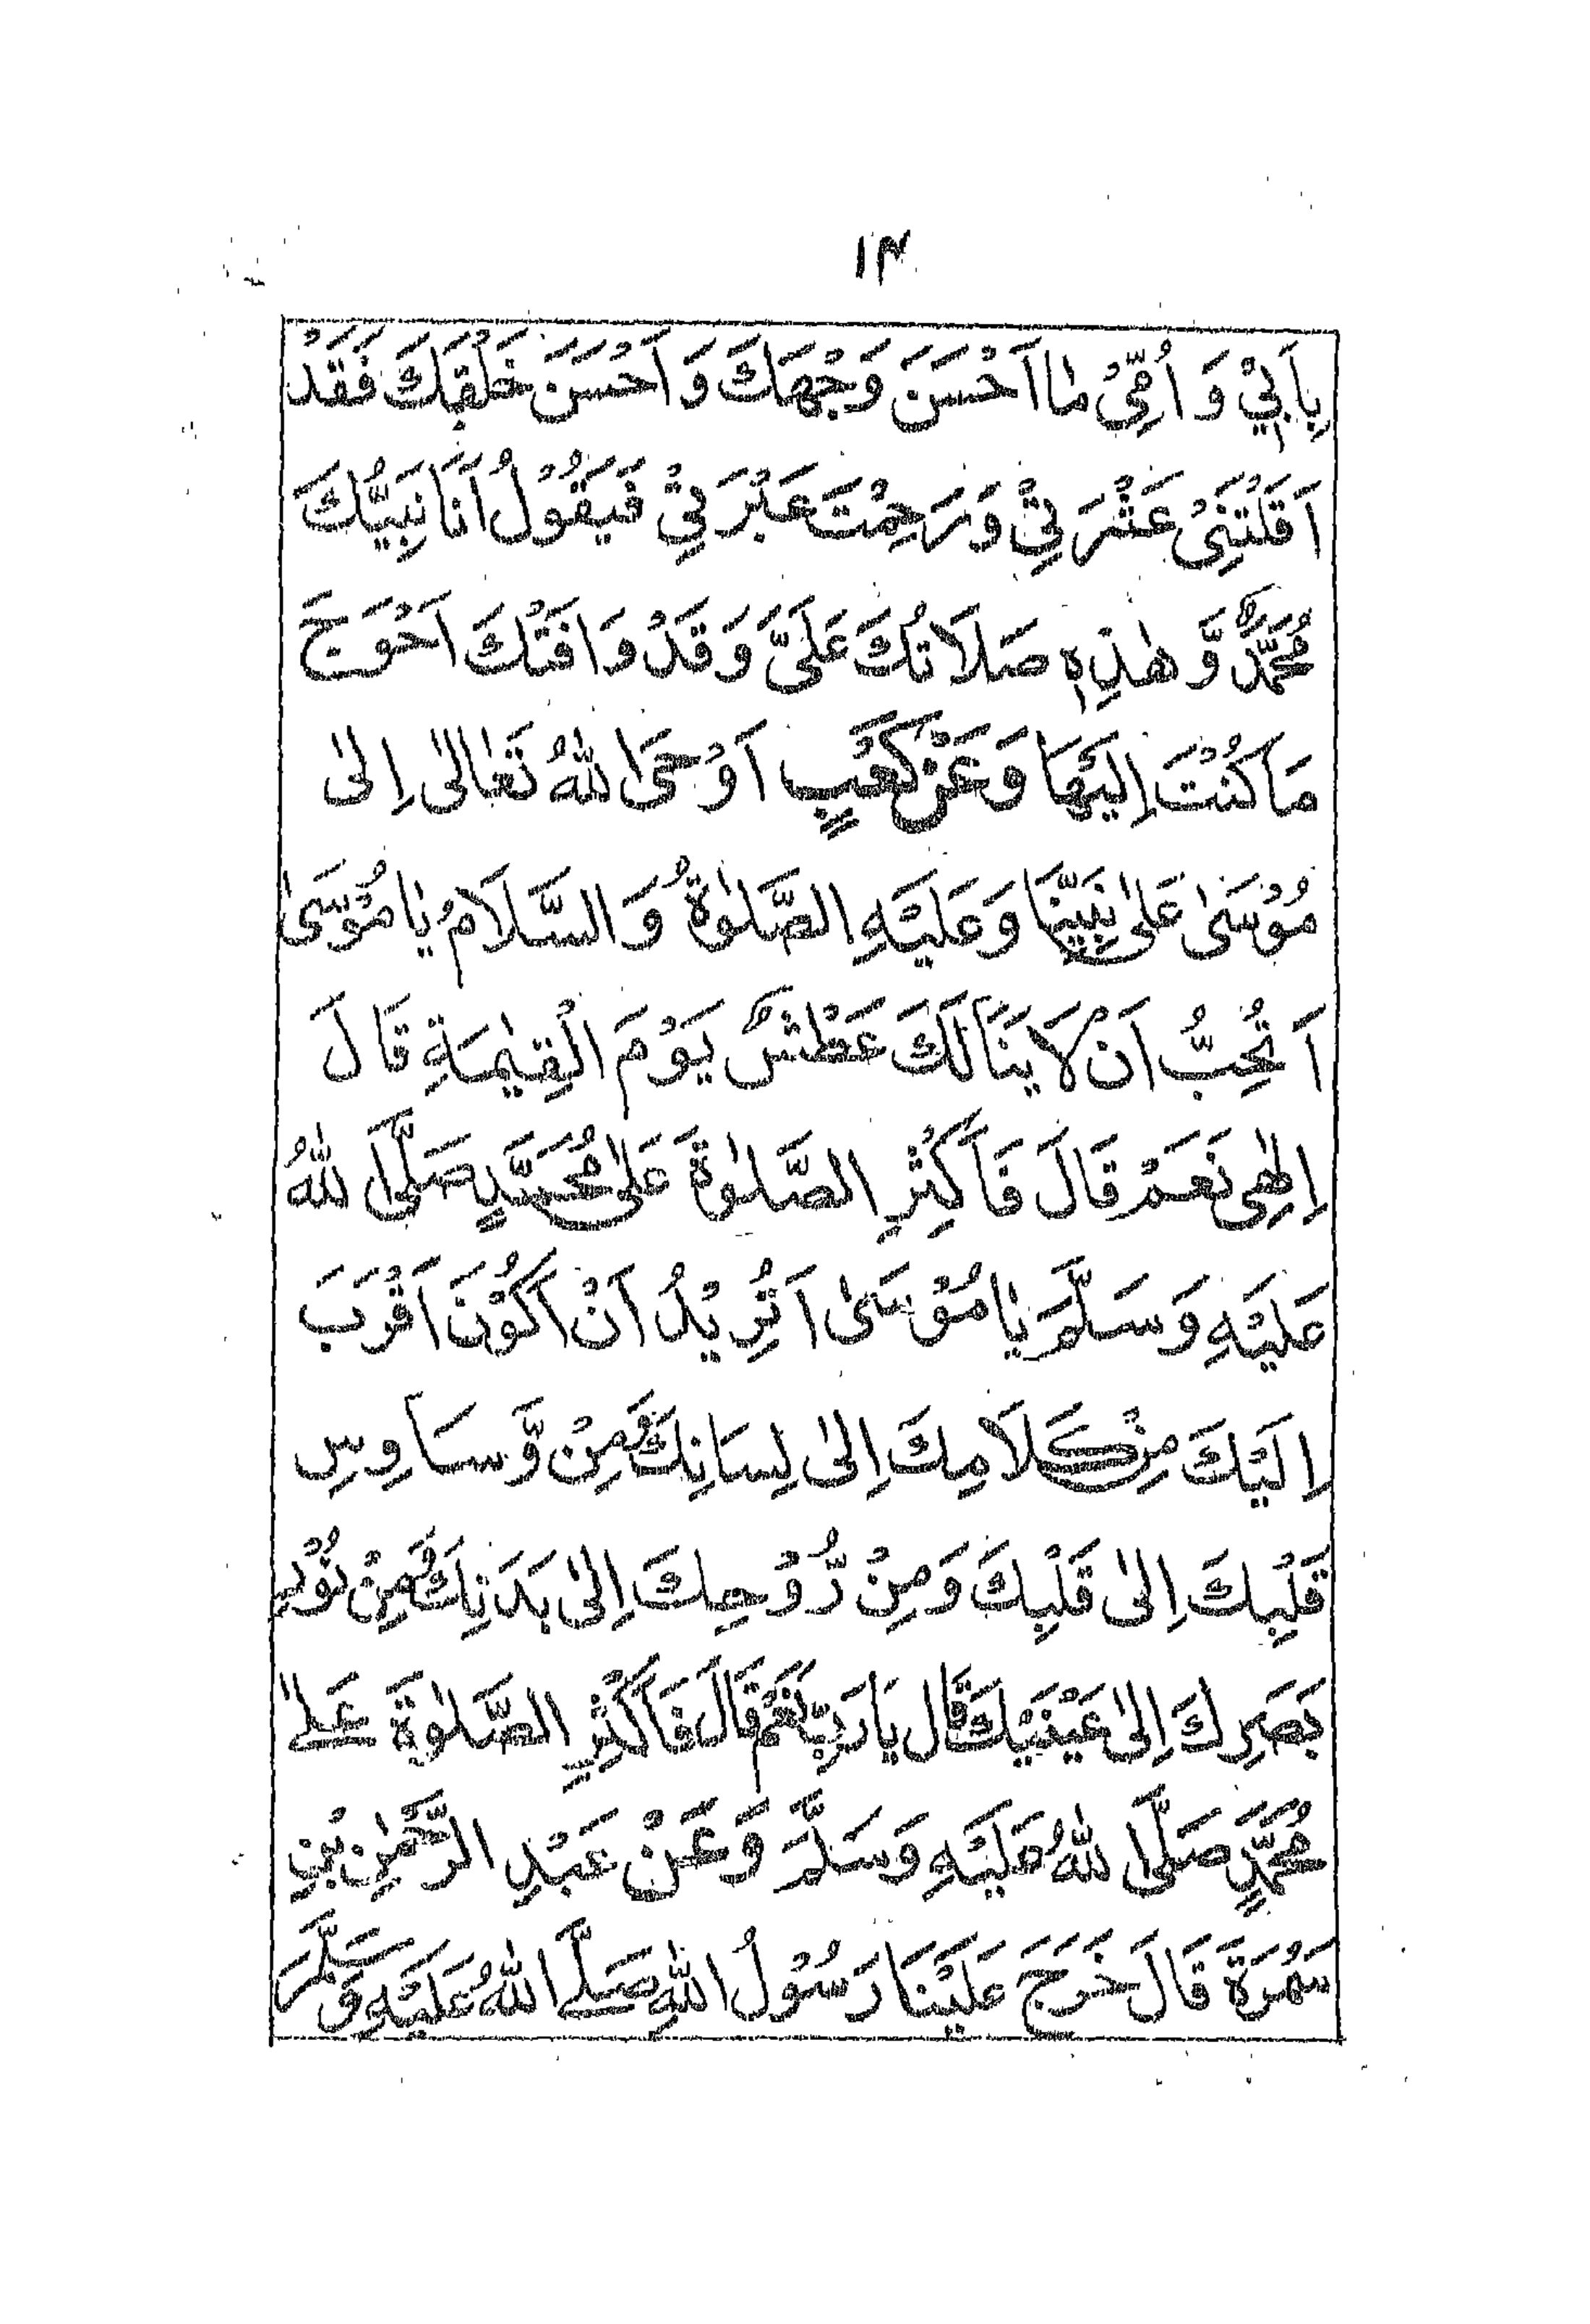 ۱۴
بِاَبِيْ وَ اُمِّيْ مٰا اَحْسَنَ وَجْهَكَ وَ اَحْسَنَ خَلْقَكَ فَقَدْ
اَقَلْتَنِيْ عَثْرَتِيْ وَرَحِمْتَ عَبْرَتِيْ فَيَقُوْلُ اَنَا نَبِيُّكَ
مُحَمَّدٌ وَّ هٰذِهٖ صَلَاتُكَ عَلَيَّ وَقَدْ وَافَتْكَ اَحْوَجَ
مَا كُنْتَ اِلَيْهَا وَعَنْ كَعْبٍ اَوْحَى اللهُ تَعَالٰى اِلٰى
مُوْسَىٰ عَلٰى نَبِيِّنَا وَعَلَيْهِ الصَّلٰوةُ وَالسَّلَامُ يٰا مُوْسَىٰ
اَتُحِبُّ اَنْ لَا يَنَالَكَ عَطَشٌ يَوْمَ الْقِيٰمَةِ قَالَ
اِلٰهِى نَعَمْ قَالَ فَاَكْثِرِ الصَّلٰوةَ عَلٰى مُحَمَّدٍ صَلَّى اللهُ
عَلَيْهِ وَسَلَّمَ يٰا مُوْسَىٰ اَتُرِيْدُ اَنْ اَكُوْنَ اَقْرَبَ
اِلَيْكَ مِنْ كَلَامِكَ اِلٰى لِسَانِكَ وَمِنْ وَّسَاوِسِ
قَلْبِكَ اِلٰى قَلْبِكَ وَمِنْ رُّوْحِكَ اِلٰى بَدَنِكَ وَمِنْ نُوْرِ
بَصَرِكَ اِلٰى عَيْنَيْكَ قَالَ يَا رَبِّ نَعَمْ قَالَ فَاَكْثِرِ الصَّلٰوةَ عَلٰى
مُحَمَّدٍ صَلَّى اللهُ عَلَيْهِ وَسَلَّمَ وَعَنْ عَبْدِ الرَّحْمٰنِ بْنِ
سَمُرَةَ قَالَ خَرَجَ عَلَيْنَا رَسُوْلُ اللهِ صَلَّى اللهُ عَلَيْهِ وَسَلَّمَ